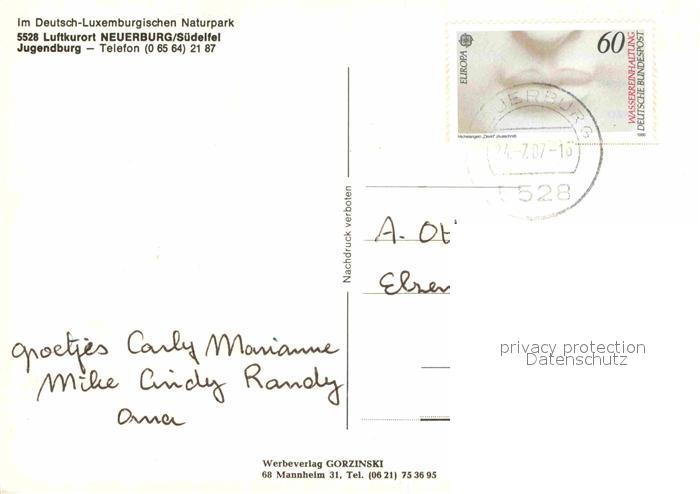 Im Deutsch-Luxemburgischen Naturpark
5528 Luftkurort NEUERBURG/Südeifel
Jugendburg – Telefon (0 65 64) 21 87
EUROPA
60
WASSERREINHALTUNG
DEUTSCHE BUNDESPOST
Michelangelo „David“ (Ausschnitt)
1986
5528
Nachdruck verboten
A. Ot
Elzen
groetjes Carly Marianne
Mike Cindy Randy
Oma
privacy protection
Datenschutz
Werbeverlag GORZINSKI
68 Mannheim 31, Tel. (06 21) 75 36 95